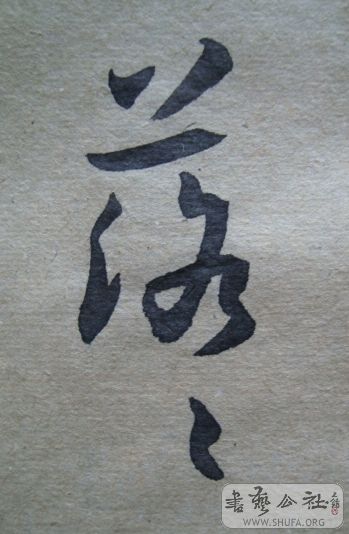 落々
書藝公社
WWW.SHUFA.ORG